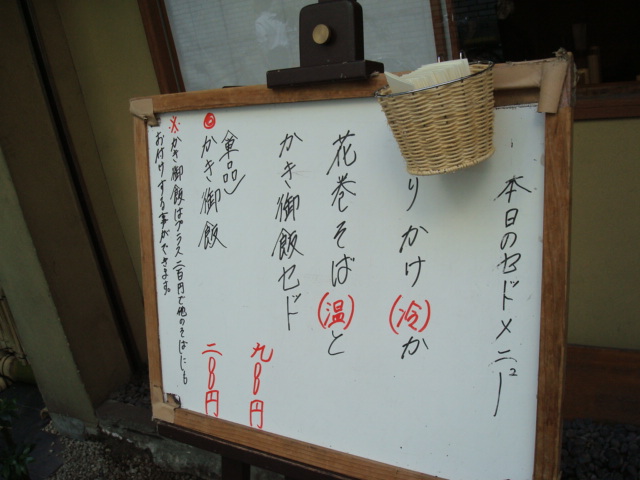 本日のセドメニュー
りかけ(冷)か
花巻そば(温)と
かき御飯セド
九〇〇円
単品
かき御飯
二〇〇円
※かき御飯はプラス二百円で他のそばにも
お付けする事ができます。